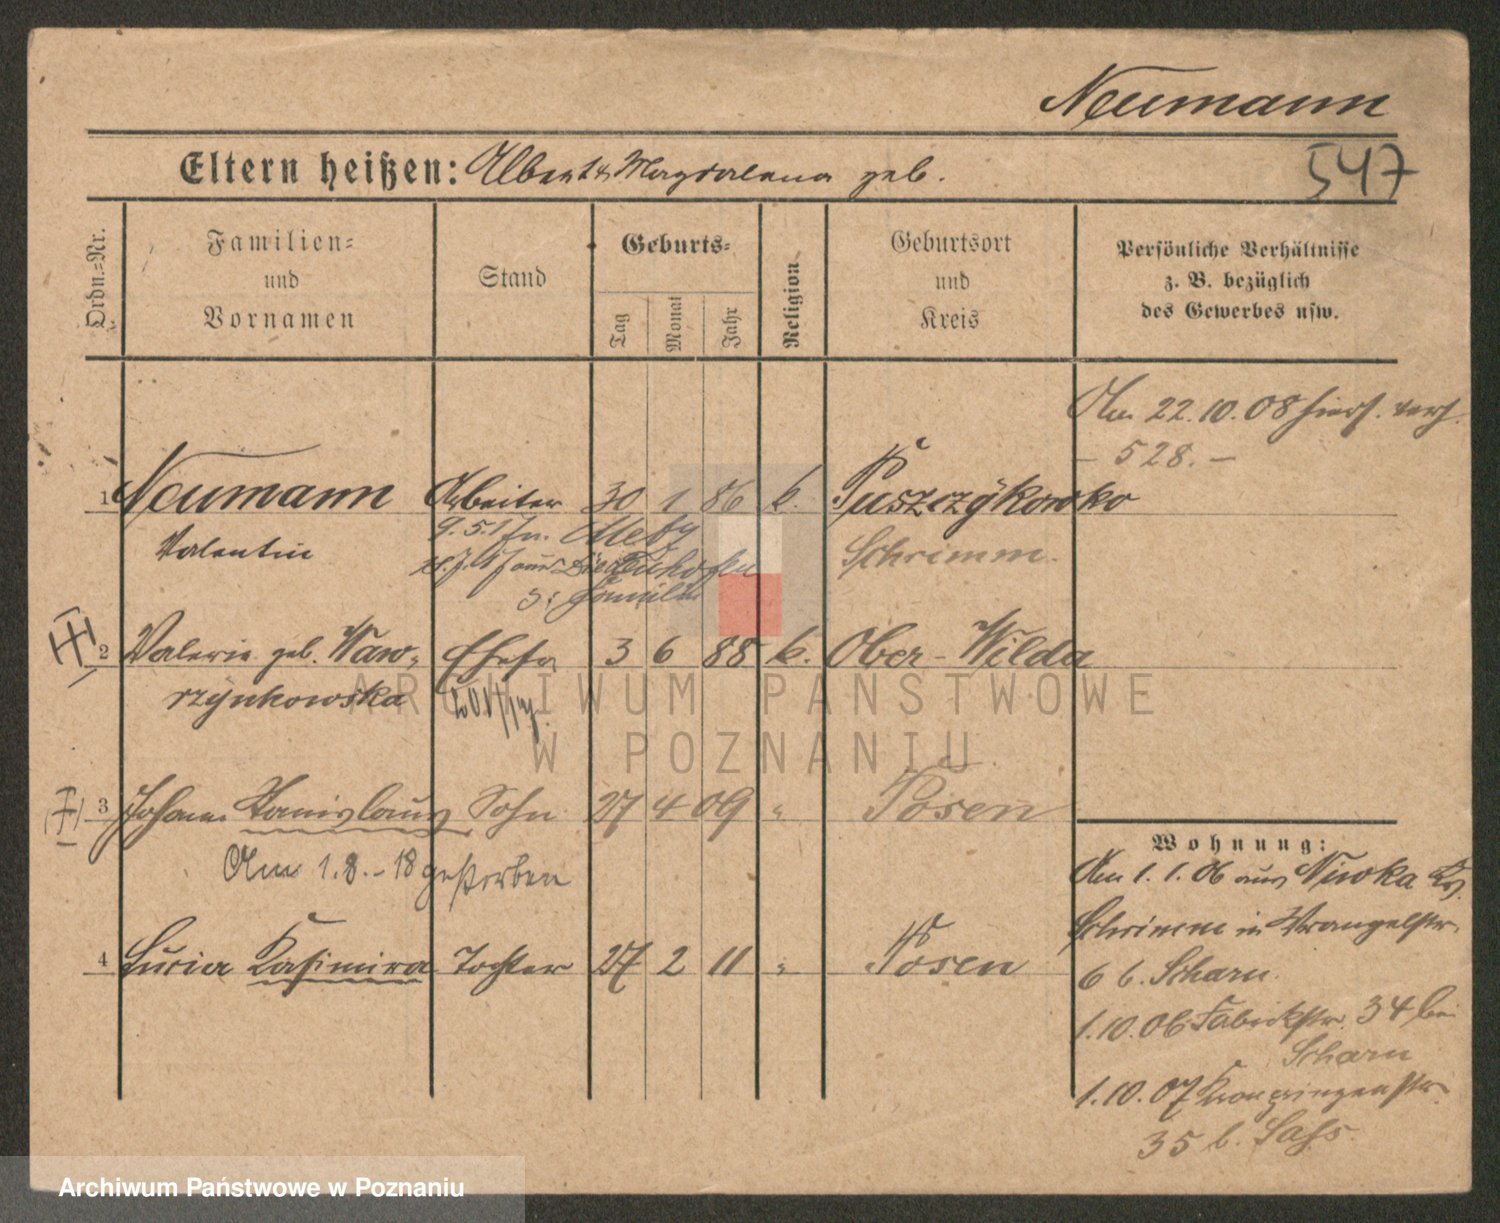 Neumann
547
Eltern heißen: Albert & Magdalena geb.
Ordn.-Nr.
Familien-
und
Vornamen
Stand
Geburts-
Tag
Monat
Jahr
Religion
Geburtsort
und
Kreis
Persönliche Verhältnisse
z. B. bezüglich
des Gewerbes usw.
Am 22.10.08 hierf. verh.
- 528. -
1 Neumann Arbeiter 30 1 86 k. Puszczykowko
Valentin
9.5.17 n. Metz
Schrimm.
Familie
2 Valerie geb. Waw- Ehefr 3 6 88 k. Ober-Wilda
rzynkowska
3 Johann Stanislaus Sohn 27 4 09 " Posen
Am 1.8.-18 gestorben
4 Lucia Kasimira Tochter 27 2 11 " Posen
Wohnung:
Am 1.1.06 aus Niwka Krs.
Schrimm in Wrangelstr.
6 b. Scharn
1.10.06 Fabrikstr. 34 bei
Scharn
1.10.07 Kronprinzenstr.
35 b. Sass
ARCHIWUM PAŃSTWOWE
W POZNANIU
Archiwum Państwowe w Poznaniu